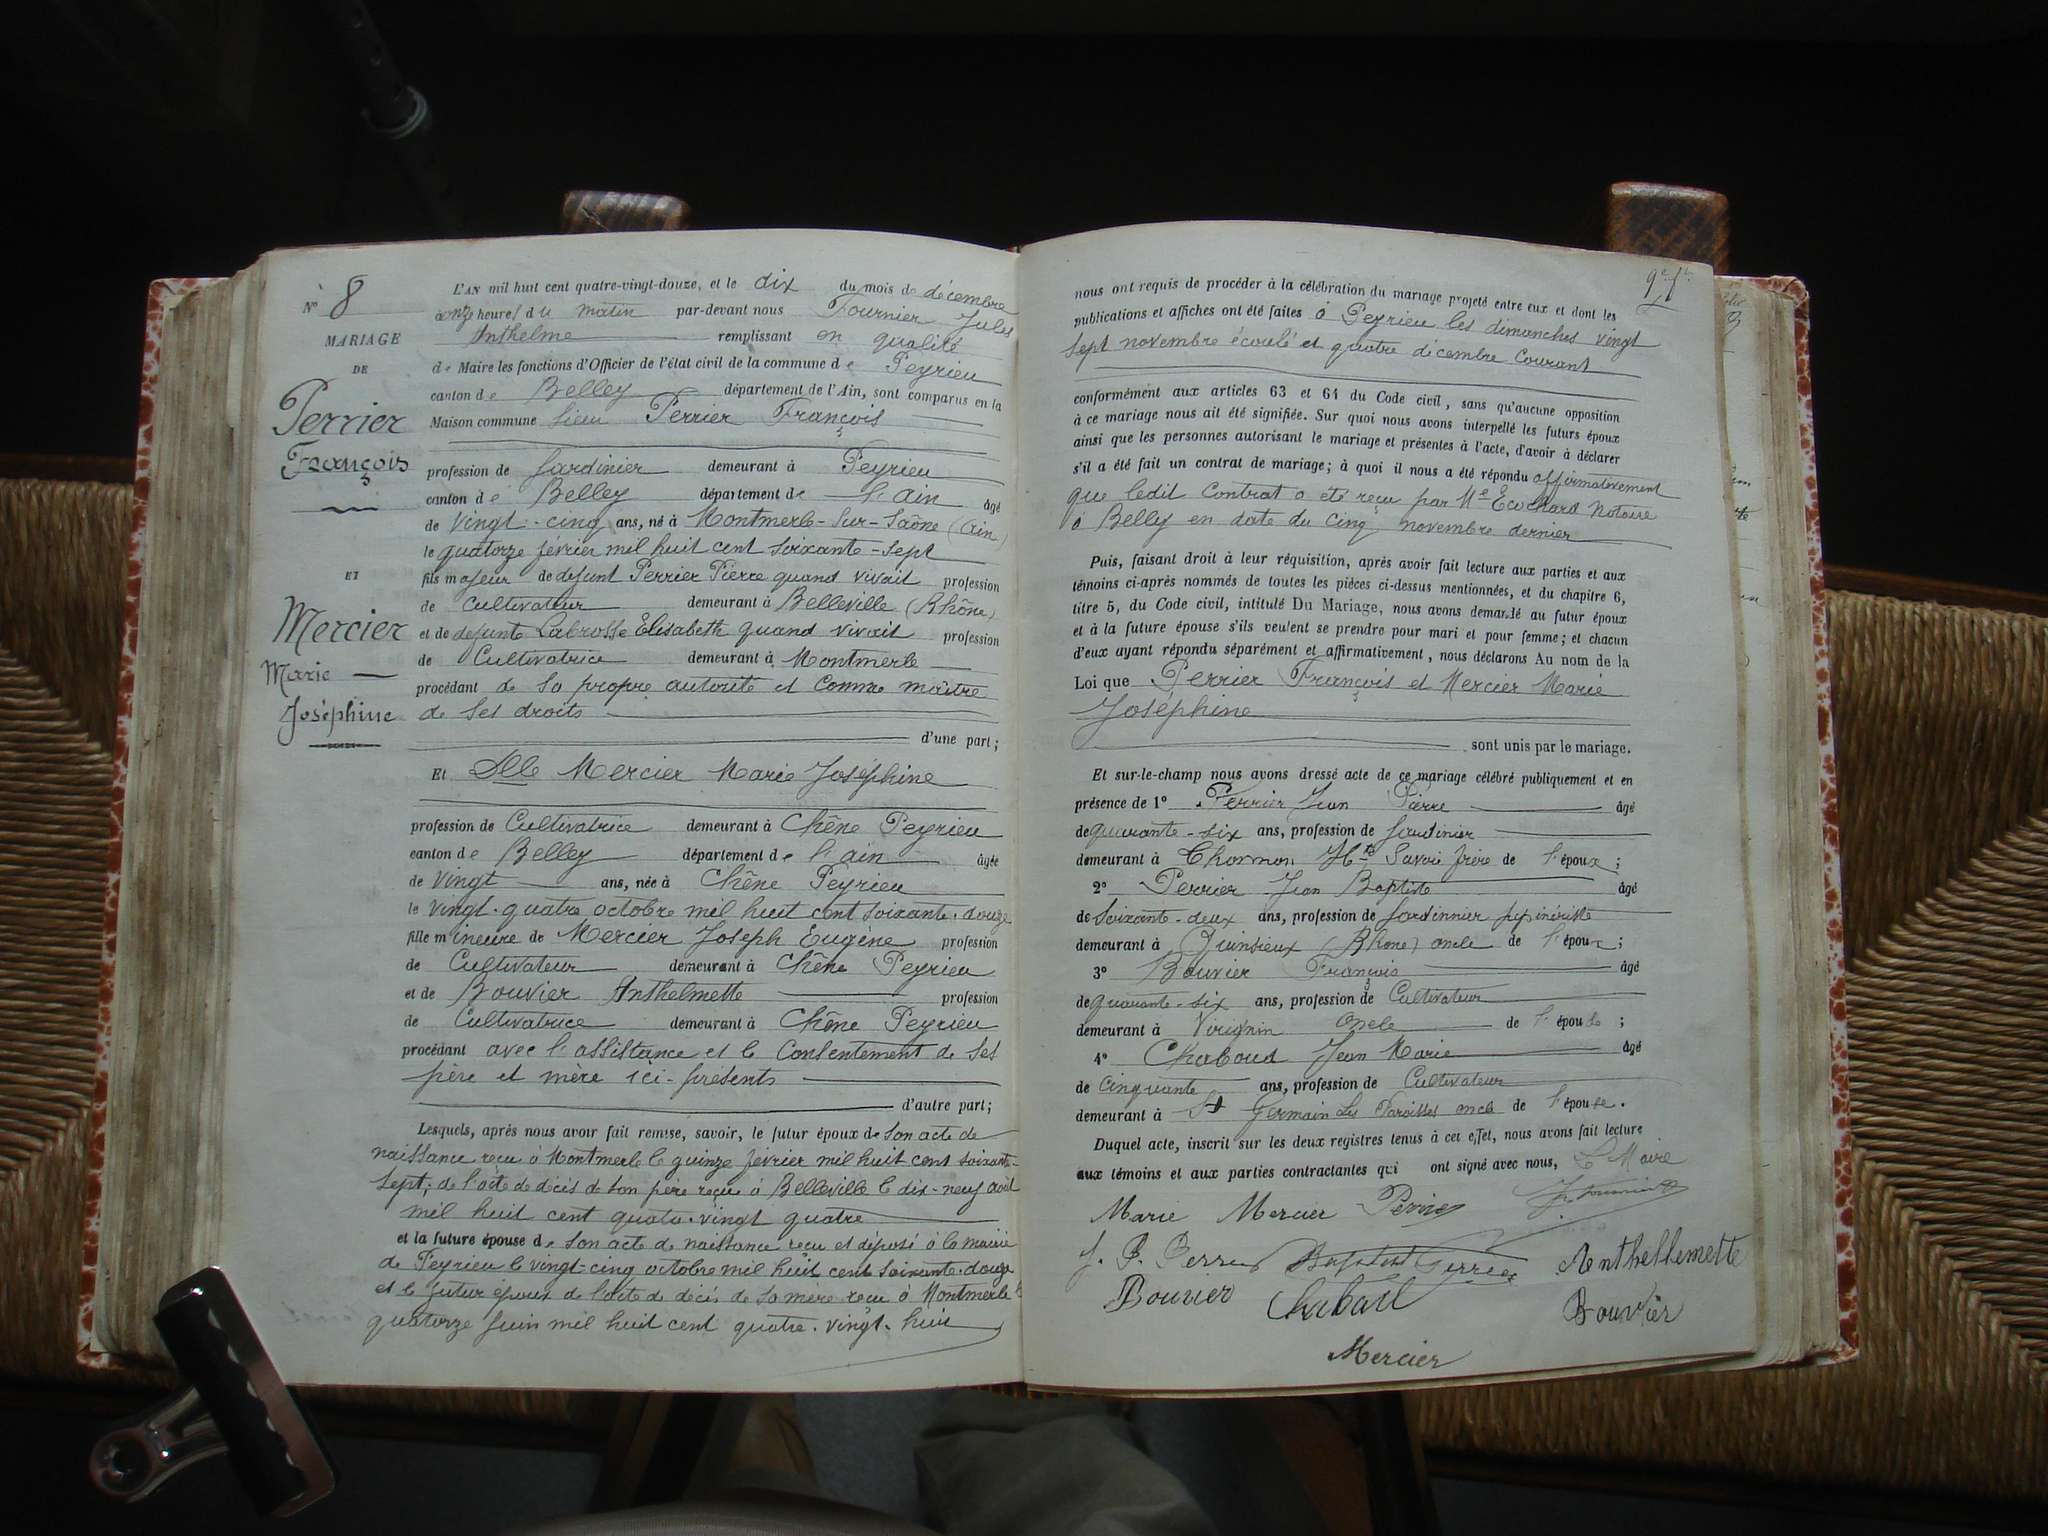 N° 8
MARIAGE
DE
Perrier
François
ET
Mercier
Marie
Joséphine
L'AN mil huit cent quatre-vingt-douze, et le dix du mois de décembre
à onze heures du matin par-devant nous Fournier Jules
Anthelme remplissant en qualité
de Maire les fonctions d'Officier de l'état civil de la commune de Peyrieu
canton de Belley département de l'Ain, sont comparus en la
Maison commune sieur Perrier François
profession de Jardinier demeurant à Peyrieu
canton de Belley département de l'ain âgé
de vingt-cinq ans, né à Montmerle-Sur-Saône (Ain)
le quatorze février mil huit cent soixante-sept
fils majeur de defunt Perrier Pierre quand vivait profession
de Cultivateur demeurant à Belleville (Rhône)
et de defunte Labrosse Elisabeth quand vivait profession
de Cultivatrice demeurant à Montmerle
procédant de sa propre autorité et comme maître
de ses droits
d'une part;
Et Dlle Mercier Marie Joséphine
profession de Cultivatrice demeurant à Chêne Peyrieu
canton de Belley département de l'ain âgée
de vingt ans, née à Chêne Peyrieu
le vingt-quatre octobre mil huit cent soixante-douze
fille mineure de Mercier Joseph Eugène profession
de Cultivateur demeurant à Chêne Peyrieu
et de Bouvier Anthelmette profession
de Cultivatrice demeurant à Chêne Peyrieu
procédant avec l'assistance et le Consentement de ses
père et mère ici-présents
d'autre part;
Lesquels, après nous avoir fait remise, savoir, le futur époux de son acte de
naissance reçu à Montmerle le quinze février mil huit cent soixante-
sept; de l'acte de décès de son père reçu à Belleville le dix-neuf août
mil huit cent quatre-vingt quatre
et la future épouse de son acte de naissance reçu et déposé à la mairie
de Peyrieu le vingt-cinq octobre mil huit cent soixante-douze
et le futur époux de l'acte de décès de sa mère reçu à Montmerle le
quatorze juin mil huit cent quatre-vingt-huit
nous ont requis de procéder à la célébration du mariage projeté entre eux et dont les
publications et affiches ont été faites à Peyrieu les dimanches vingt
sept novembre écoulé et quatre décembre Courant
conformément aux articles 63 et 64 du Code civil, sans qu'aucune opposition
à ce mariage nous ait été signifiée. Sur quoi nous avons interpellé les futurs époux
ainsi que les personnes autorisant le mariage et présentes à l'acte, d'avoir à déclarer
s'il a été fait un contrat de mariage; à quoi il nous a été répondu affirmativement
que ledit Contrat a été reçu par Me Ecochard Notaire
à Belley en date du cinq novembre dernier
Puis, faisant droit à leur réquisition, après avoir fait lecture aux parties et aux
témoins ci-après nommés de toutes les pièces ci-dessus mentionnées, et du chapitre 6,
titre 5, du Code civil, intitulé Du Mariage, nous avons demandé au futur époux
et à la future épouse s'ils veulent se prendre pour mari et pour femme; et chacun
d'eux ayant répondu séparément et affirmativement, nous déclarons Au nom de la
Loi que Perrier François et Mercier Marie
Joséphine
sont unis par le mariage.
Et sur-le-champ nous avons dressé acte de ce mariage célébré publiquement et en
présence de 1° Perrier Jean Pierre âgé
de quarante-six ans, profession de Jardinier
demeurant à Thonon Hte Savoie frère de l'époux;
2° Perrier Jean Baptiste âgé
de soixante-deux ans, profession de Jardinnier pépinériste
demeurant à Quinsieux (Rhone) oncle de l'époux;
3° Bouvier François âgé
de quarante-six ans, profession de Cultivateur
demeurant à Virignin oncle de l'épouse;
4° Chaboud Jean Marie âgé
de cinquante ans, profession de Cultivateur
demeurant à St Germain Les Paroisses oncle de l'épouse.
Duquel acte, inscrit sur les deux registres tenus à cet effet, nous avons fait lecture
aux témoins et aux parties contractantes qui ont signé avec nous, Le Maire
Marie Mercier Perrier J. Fournier
J. P. Perrier Baptiste Perrier Anthellemette
Bouvier Bouvier
Mercier